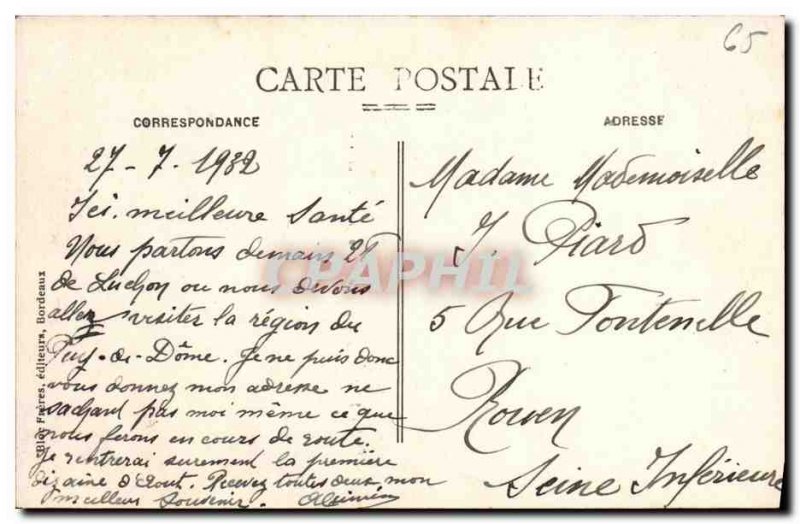 65
CARTE POSTALE
CORRESPONDANCE
ADRESSE
27-7-1932
Ici. meilleure Santé
Nous partons demain 28
de Luchon ou nous devons
allez visiter la région du
Puy-de-Dôme. Je ne puis donc
vous donnez mon adresse ne
sachant pas moi même ce que
nous ferons en cours de route.
Je rentrerai surement la première
dizaine d'Aout. Recevez toutes deux mon
meilleur Souvenir.
Madame Mademoiselle
J. Piard
5 Rue Fontenelle
Rouen
Seine Inférieure
Bloc Frères, éditeurs, Bordeaux
CPAPHIL